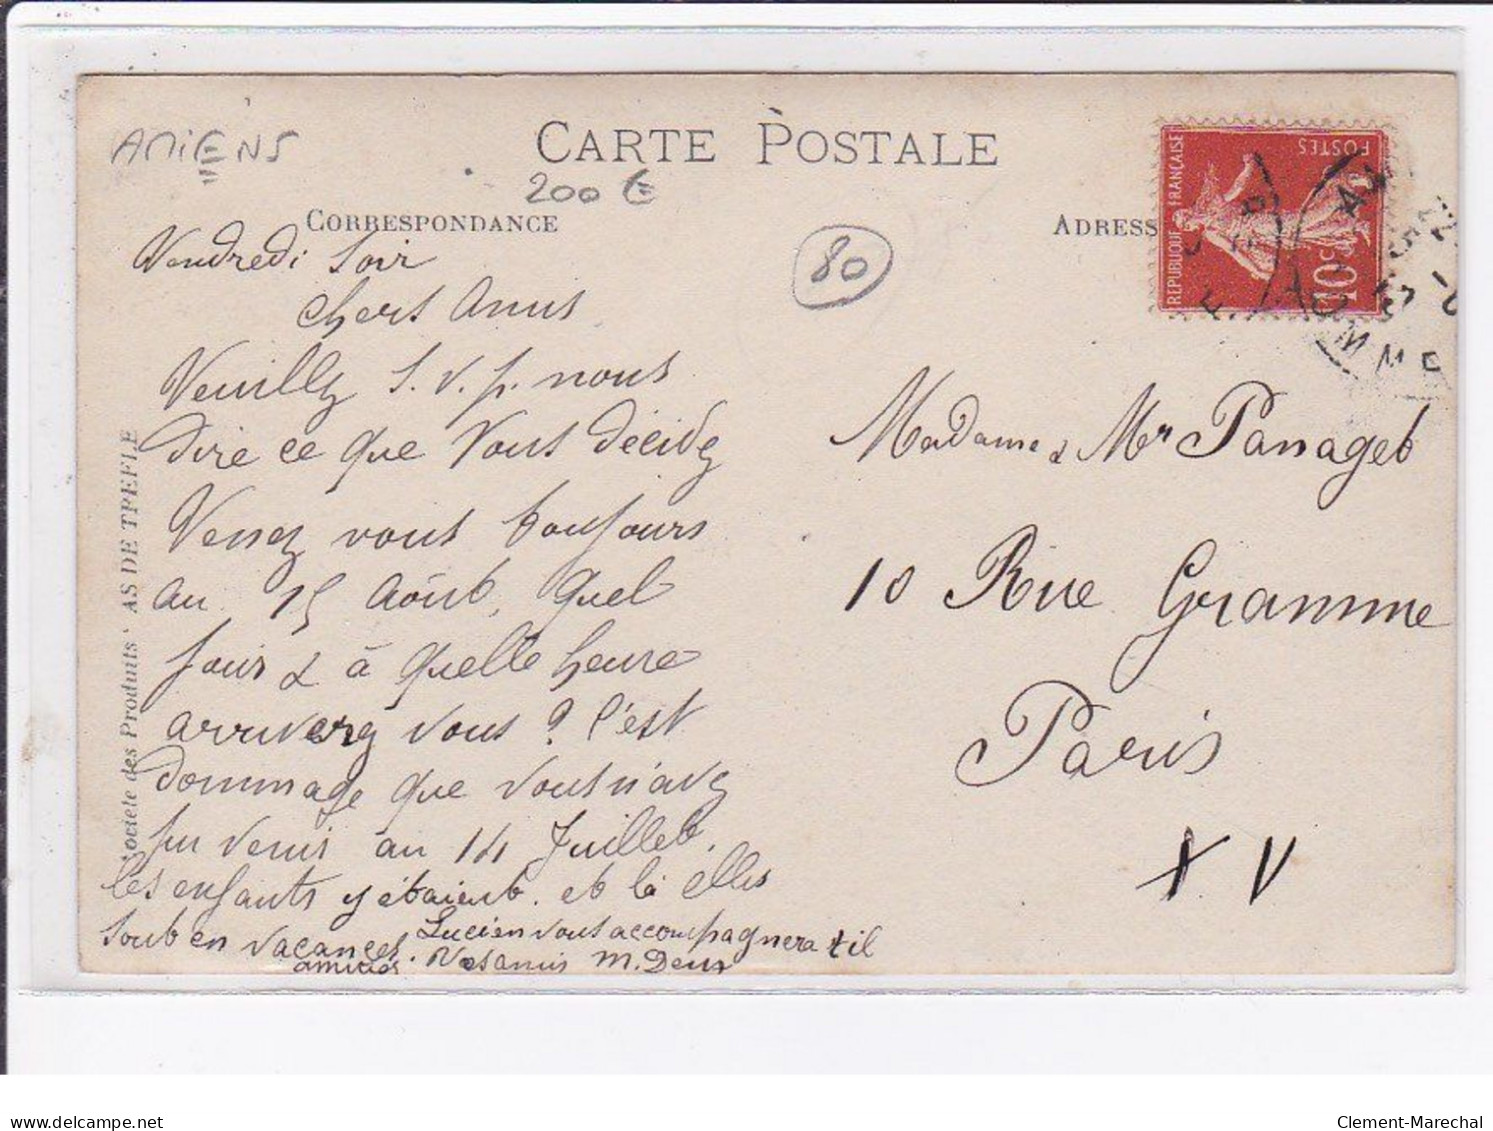 AMIENS
CARTE POSTALE
200 €
CORRESPONDANCE
ADRESS
80
REPUBLIQUE FRANÇAISE
POSTES
10 c
Vendredi Soir
Chers Amis
Veuillez S.V.p. nous
dire ce que Vous décidez
Venez vous toujours
au 15 Août, Quel
jour & à Quelle heure
arriverez vous ? C'est
dommage que vous n'avez
pu venir au 14 Juillet.
les enfants y étaient. et là elles
sont en vacances. Lucien vous accompagnera t il
amitiés. Vos amis M. Deux
Madame & Mr Panaget
10 Rue Gramme
Paris
XV
Société des Produits " AS DE TREFLE
Clement-Marechal
delcampe.net